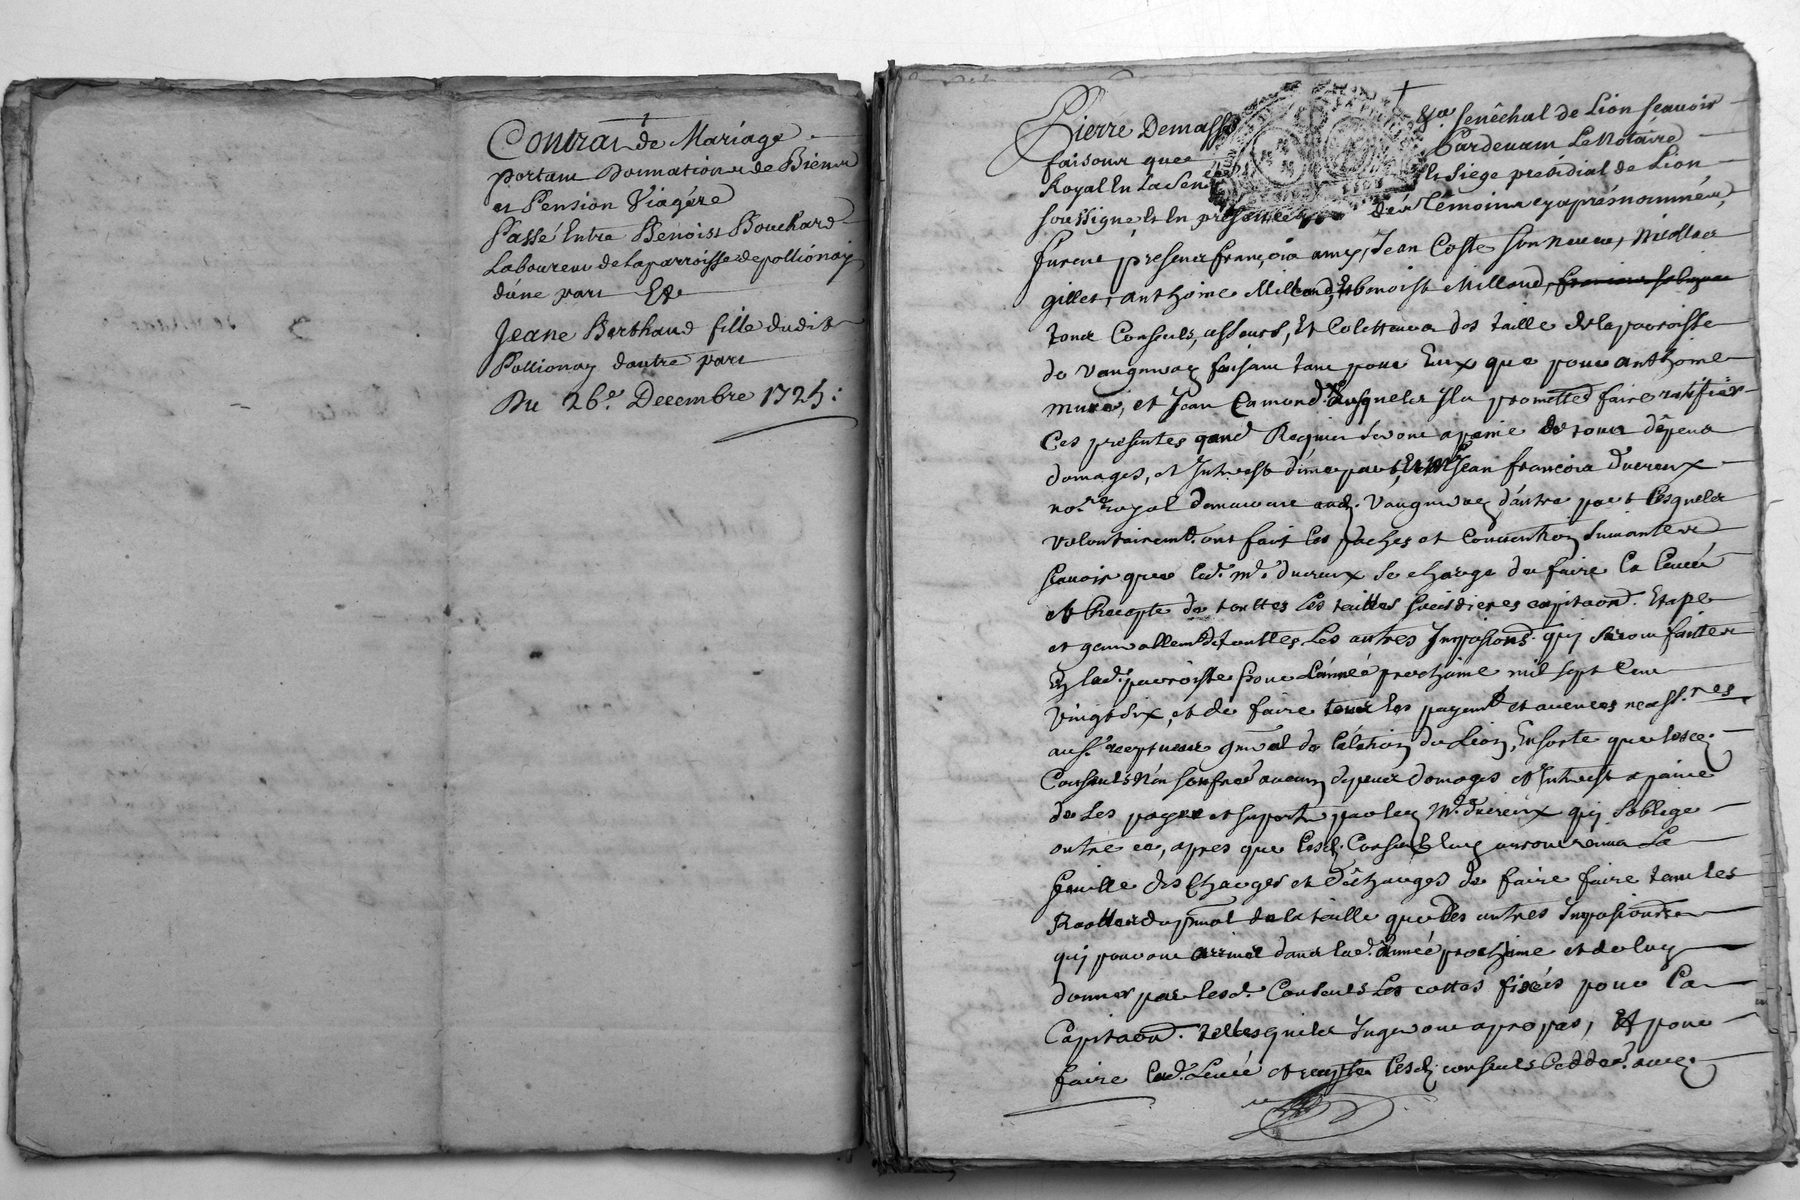 Contrat de Mariage
portant Donnation de Biens
et Pension Viagére
Passé Entre Benoist Bouchard
Laboureur de la parroisse de pollionay
d'une part Et
Jeane Berthaud fille dudit
Pollionay dautre part
Du 26e. Decembre 1725:
Pierre Demasso Sénéchal de Lion scavoir
faisons que Pardevant Le Notaire
Royal En La Sen et Siege présidial de Lion
soussigné Et En présence des Témoins cyaprés nommés,
furent présens françois Jean Coste son neveu, Nicollas
gillet, anthoine Milland, Et benoist Milland,
tous Consuls, Et Colecteurs des taille de la parroisse
de Vaugneray faisant tant pour Eux que pour anthoine
et Jean Camond ausquels Ils promettes faire ratifier
Ces présentes quand Requis seront apeine de tous dépens
domages, et Interest d'une part, Et Me Jean francois Ducreux
nore. royal demeurant aud. Vaugneray d'autre part Lesquels
volontairemt. ont fait les paches et Convention suivantes
scavoir que Led. Me. Ducreux se charge de faire La Levée
et Recepte de touttes Les tailles capitaon. Etape
et generallemt. de touttes Les autres Imposions. qui seront faittes
En lad. parroisse pour L'année prochaine mil sept Cent
vingt six, et de faire tous les payemt. et avences necess.res
au sr. recepveur gneral de l'élection de Lion, En sorte que lesd.
Consuls N'en soufres aucun dépens domages et Interest apeine
de Les payer et suporter par led. Me. Ducreux qui s'oblige
outre ce, apres que Lesd. Consuls luy auront remis La
feuille des Charges et Décharges de faire faire tant les
Roolles du de la taille que des autres Impositions
qui pouront arriver dans lad. année prochaine et de luy
donner par lesd. Consuls Les cottes fixés pour La
Capitaon. telles quils Jugeront apropos, Et pour
faire Lad. Levée et recepte Lesd. consuls Cedde avec